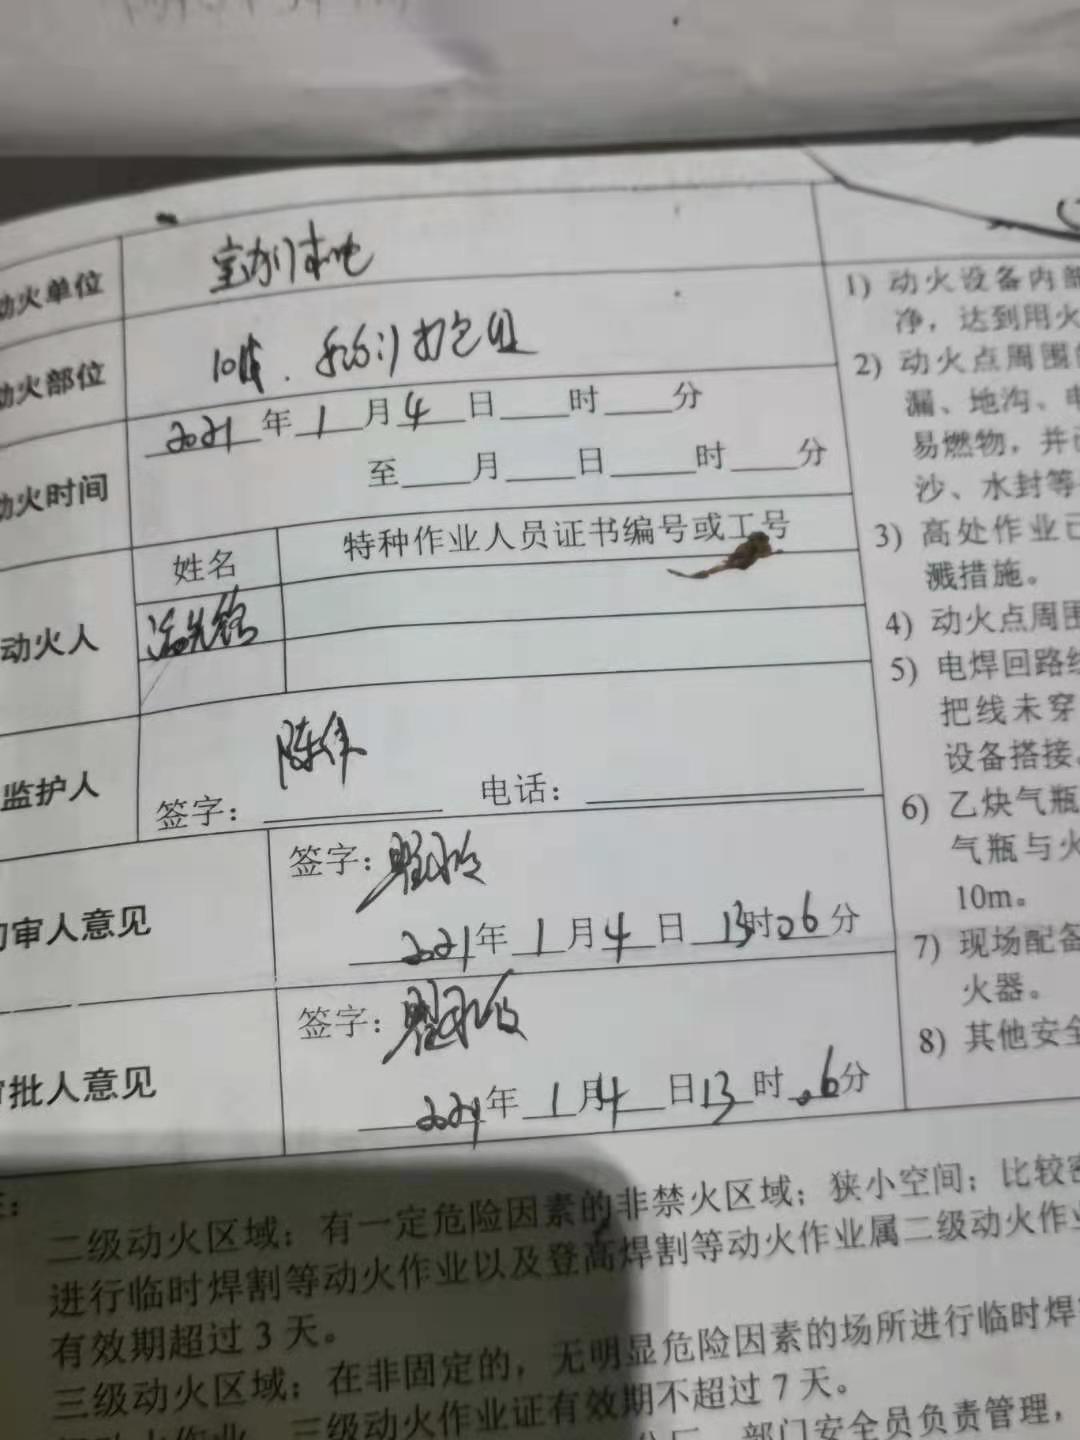 动火单位
动火部位
2021年1月4日 时 分
至 月 日 时 分
动火时间
姓名 特种作业人员证书编号或工号
动火人
陈伟
监护人 签字： 电话：
签字：
初审人意见
2021年1月4日13时06分
签字：
审批人意见
2021年1月4日13时06分
1) 动火设备内部
净，达到用火
2) 动火点周围
漏、地沟、电
易燃物，并已
沙、水封等
3) 高处作业已
溅措施。
4) 动火点周围
5) 电焊回路线
把线未穿
设备搭接。
6) 乙炔气瓶
气瓶与火
10m。
7) 现场配备
火器。
8) 其他安全
二级动火区域：有一定危险因素的非禁火区域；狭小空间；比较密
进行临时焊割等动火作业以及登高焊割等动火作业属二级动火作业
有效期超过 3 天。
三级动火区域：在非固定的，无明显危险因素的场所进行临时焊
动火作业，三级动火作业证有效期不超过 7 天。
部门安全员负责管理，